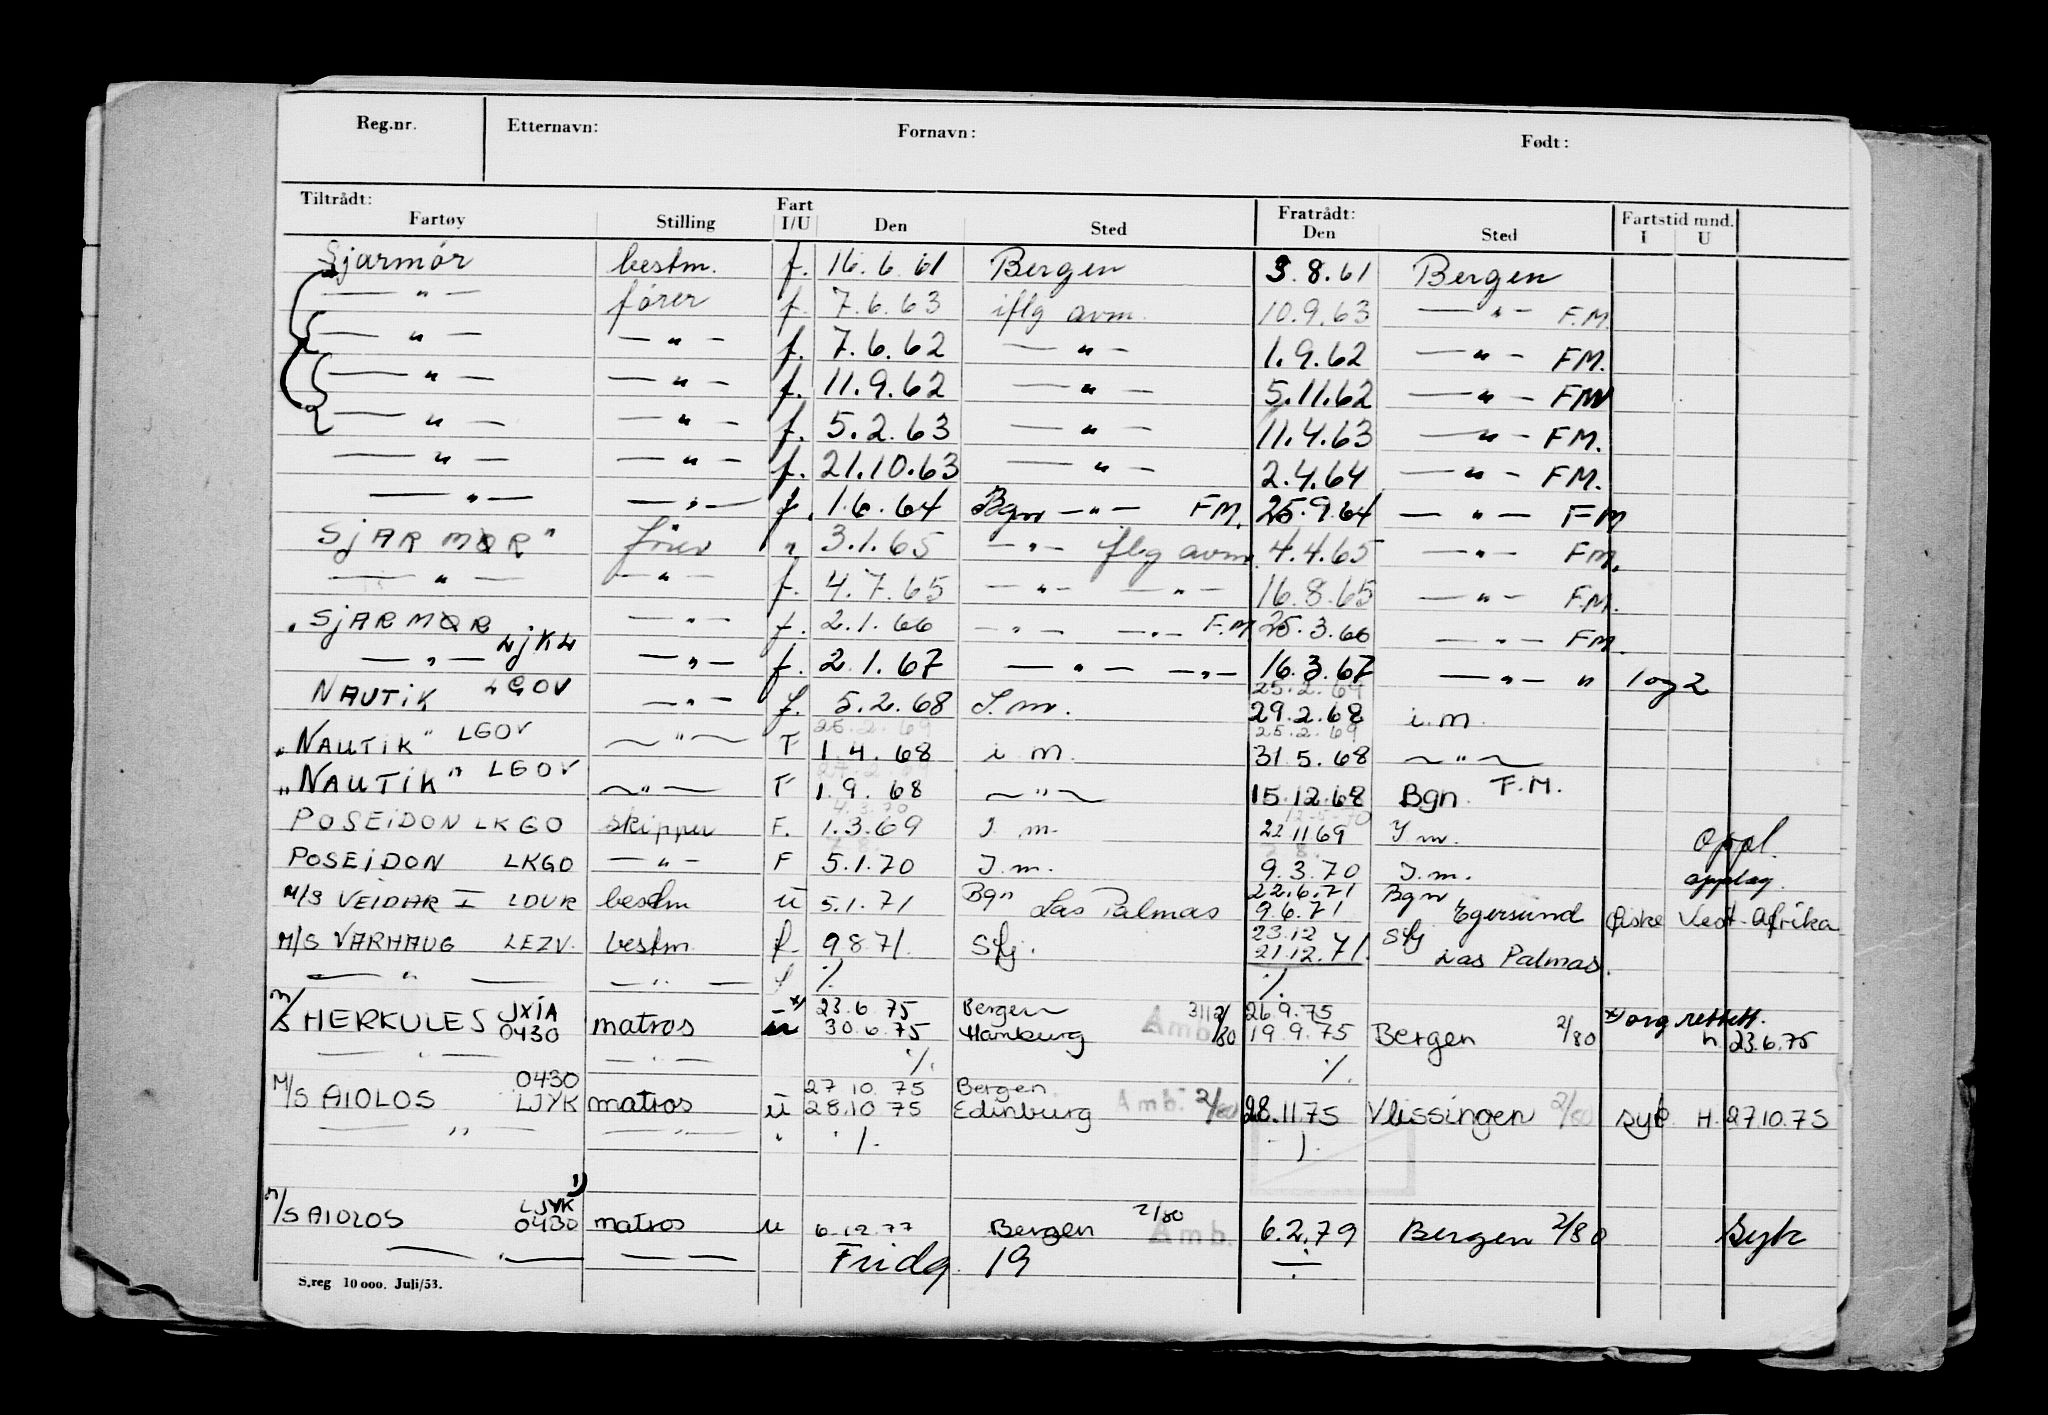 Reg.nr. Etternavn: Fornavn: Født:
Tiltrådt: Fart Fratrådt: Fartstid mnd.
Fartøy Stilling I/U Den Sted Den Sted I U
Sjarmör bestm. f. 16.6.61 Bergen 3.8.61 Bergen
— " — fører f. 7.6.63 iflg avm. 10.9.63 — " — F.M.
— " — — " — f. 7.6.62 — " — 1.9.62 — " — FM.
— " — — " — f. 11.9.62 — " — 5.11.62 — " — FM
— " — — " — f. 5.2.63 — " — 11.4.63 — " — FM.
— " — — " — f. 21.10.63 — " — 2.4.64 — " — FM.
— " — — " — f. 1.6.64 Bgn — " — FM. 25.9.64 — " — FM
SjARMØR" förer " 3.1.65 — " — iflg avm. 4.4.65 — " — FM.
— " — — " — f. 4.7.65 — " — — " — 16.8.65 — " — F.M.
"SjARMØR — " — f. 2.1.66 — " — — " — F.M. 25.3.66 — " — FM.
— " — LjKL — " — f. 2.1.67 — " — — " — 16.3.67 — " — " 1 og 2
25.2.69
NAUTiK LGOV — " — f. 5.2.68 I.m. 29.2.68 i.m.
25.2.69 25.2.69
"NAUTiK" LGOV — " — F 1.4.68 i m. 31.5.68 — " —
"NAUTiK" LGOV — " — F 1.9.68 — " — 15.12.68 Bgn. F.M.
4.3.70
POSEiDON LKGO skipper F. 1.3.69 I m. 22.11.69 I m. Oppl.
POSEiDON LKGO — " — F 5.1.70 I.m. 9.3.70 I.m. opplag.
Bgn 22.6.71 Bgn
M/S VEiDAR I LDUR bestm u 5.1.71 Las Palmas 9.6.71 Egersund fiske Vest-Afrika
23.12
M/S VARHAUG LEZV. bestm f. 9.8.71. Sfj. 21.12.71. Sfj Las Palmas.
— " — — " — f ./. ./.
JXiA x) 23.6.75 Bergen 26.9.75 x) org rettett.
M/S HERKULES 0430 matros u 30.6.75 Hamburg Amb. 2/80 19.9.75 Bergen 2/80 h 23.6.75
— " — — " — ./. ./.
0430 27.10.75 Bergen
M/S AIOLOS LJYK matros u 28.10.75 Edinburg Amb. 2/80 28.11.75 Vlissingen 2/80 syk H. 27.10.75
— " — — " — " ./. ./.
1)
LJYK
M/S AIOLOS 0430 matros u 6.12.77 Bergen 2/80 Amb. 6.2.79 Bergen 2/80 Syk
— . — — — 19
S.reg 10 000. Juli/53.